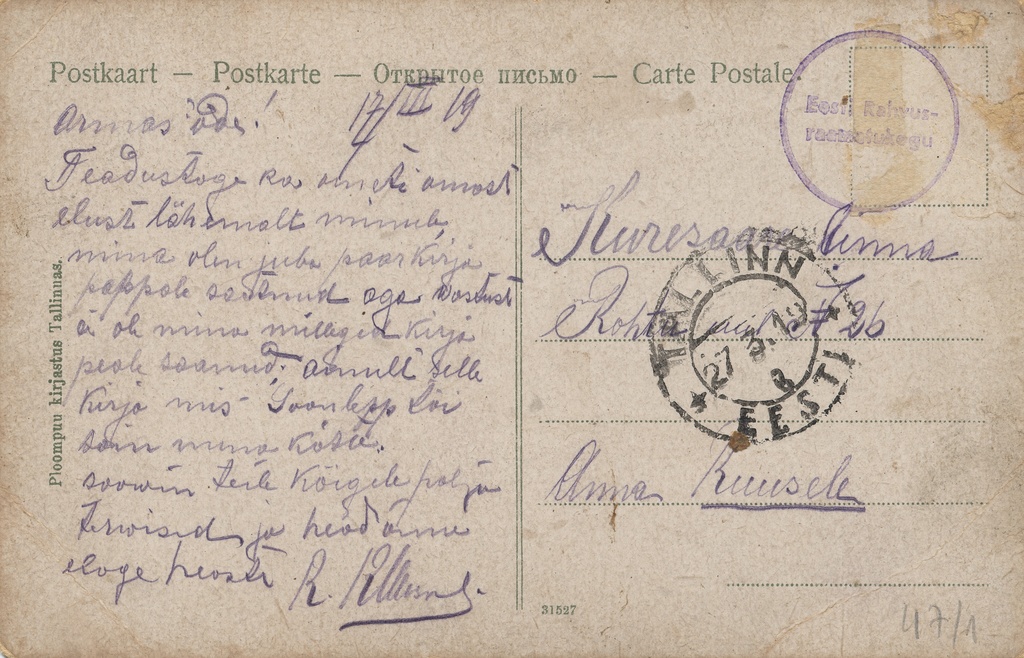 Postkaart — Postkarte — Открытое письмо — Carte Postale.
Armas õde! 17/III 19
Teadustage ka ometi omast
elust lähemalt minule,
mina olen juba paar kirja
pappale saatnud aga wastust
ei ole mina millagid kirja
peale saanud. ainult selle
kirja mis Soonlepp tõi
sain mina kätte.
soowin teile kõigile palju
terwised ja head õnne
elage hästi
R.
Ploompuu kirjastus Tallinnas.
Eesti Rahvus-
raamatukogu
Kuresaare Anna
Rohtu # 26
TALLINN
27 3. 19
8
EESTI
Anna Kuusele
31527
47/1